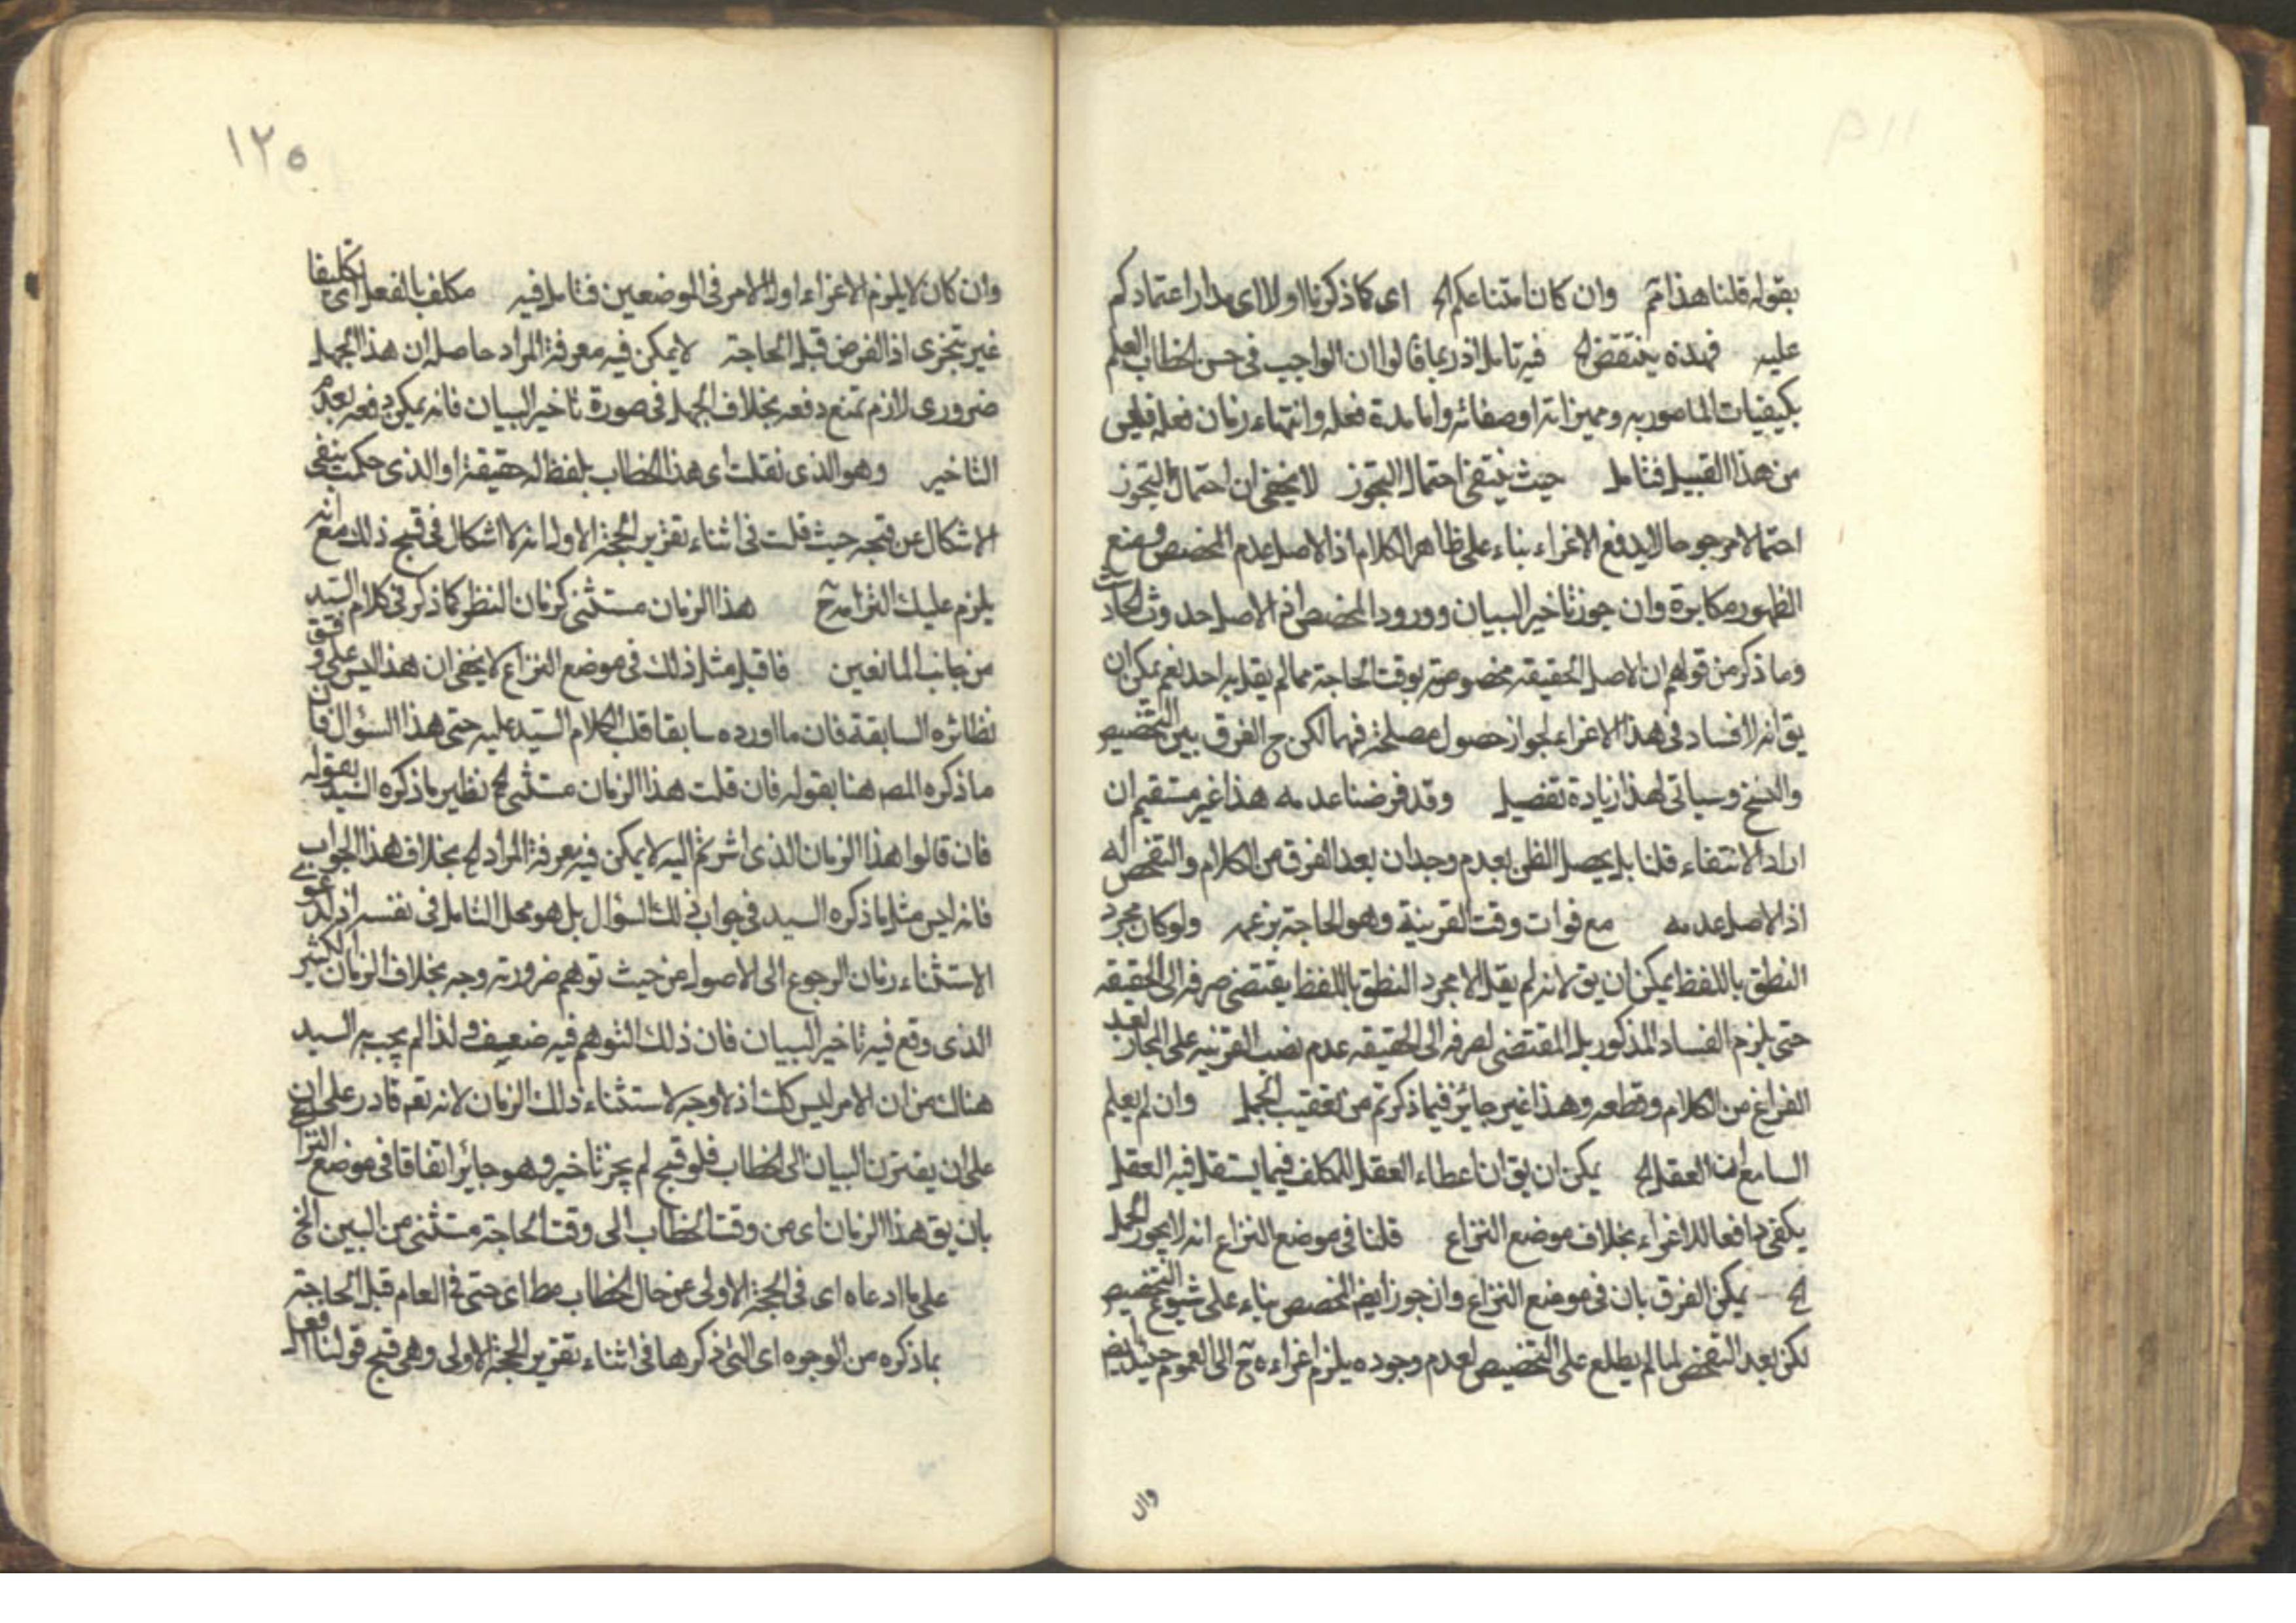 بقوله قلنا هذا تم وان كانا متناعكم الخ اى كما ذكرنا اولا اى مدار اعتمادكم
عليه فهذه ينتقض الخ فيه تامل اذ ربما قالوا ان الواجب فى حسن الخطاب العلم
بكيفيات المامور به ومميزاته اوصفاته واما مدة فعله وانتهاء زمان فعله فليس
من هذا القبيل فتامل حيث ينتفى احتمال التجوز لا يخفى ان احتمال التجوز
احتمالا مرجوحا لا يدفع الاغراء بناء على ظاهر الكلام اذ الاصل عدم المخصص فمنع
الظهور مكابرة وان جوز تاخير البيان وورود المخصص اذ الاصل حدوث الحادث
وما ذكر من قولهم ان الاصل الحقيقه مخصوصة بوقت الحاجة مما لم يقل به احد نعم يمكن ان
يق انه لا فساد فى هذا الاغراء لجواز حصول مصلحة فيهما لكن ح الفرق بين التخصيص
والنسخ وسياتى لهذا زيادة تفصيل وقد فرضنا عدمه هذا غير مستقيم ان
اراد الانتفاء قلنا بل يحصل الظن بعدم وجدان بعد الفرق من الكلام والتفحص اله
اذ الاصل عدمه مع فوات وقت القرينة وهو الحاجة بزعمه ولو كان مجرد
النطق باللفظ يمكن ان يق لانه لم يقل الا مجرد النطق باللفظ يقتضى صرفه الى الحقيقه
حتى يلزم الفساد المذكور بل المقتضى لصرفه الى الحقيقه عدم نصب القرينه على المجاز بعد
الفراغ من الكلام وقطعه وهذا غير جائز فيما ذكرتم من تعقيب الجمل وان لم يعلم
السامع ان العقل الخ يمكن ان يق ان اعطاء العقل للمكلف فيما يستقل فيه العقل
يكفى دافعا للاغراء بخلاف موضع النزاع قلنا فى موضع النزاع انه لا يجوز الحمل
الخ يمكن الفرق بان فى موضع النزاع وان جوز ايض المخصص بناء على شيوع التخصيص
لكن بعد التفحص لما لم يطلع على التخصيص لعدم وجوده يلزم اغراءه ح الى العموم حينئذ ايض
وان
١٢٥
وان كان لا يلزم الاغراء اول الامر فى الموضعين فتامل فيه مكلف بالفعل اى تكليفا
غير تنجزى اذ الفرض قبل الحاجة لا يمكن فيه معرفة المراد حاصله ان هذا الجهل
ضرورى لازم تمنع دفعه بخلاف الجهل فى صورة تاخير البيان فانه يمكن دفعه بعدم
التاخير وهو الذى نقلت اى هذا الخطاب بلفظ له حقيقة او الذى حكمت بنفى
الاشكال عن قبحه حيث قلت فى اثناء تقرير الحجة الاولى انه لا اشكال فى قبح ذلك مع انه
يلزم عليك التزامه ح هذا الزمان مستثنى كزمان النظر كما ذكر فى كلام السيد
من جانب المانعين فاقبل مثل ذلك فى موضع النزاع لا يخفى ان هذا ليس على وفق
نظائره السابقة فان ما اورده سابقا قلب لكلام السيد عليه حتى هذا السؤال فان
ما ذكره المص هنا بقوله فان قلت هذا الزمان مستثنى الخ نظير ما ذكره السيد بقوله
فان قالوا هذا الزمان الذى اشرتم اليه لا يمكن فيه معرفة المراد الخ بخلاف هذا الجواب
فانه ليس مثل ما ذكره السيد فى جواب ذلك السؤال بل هو محل التامل فى نفسه اذ لدعوى
الاستثناء زمان الرجوع الى الاصول من حيث توهم ضرورته وجه بخلاف الزمان الكثير
الذى وقع فيه تاخير البيان فان ذلك التوهم فيه ضعيف ولذا لم يجب به السيد
هناك من ان الامر ليس كك اذ لا وجه لاستثناء ذلك الزمان لانه تعم قادر على ان
على ان يقترن البيان الى الخطاب فلو قبح لم يجز تاخيره وهو جائز اتفاقا فى موضع النزاع
بان يق هذا الزمان اى من وقت الخطاب الى وقت الحاجة مستثنى من البين الخ
على ما ادعاه اى فى الحجة الاولى عن حال الخطاب مط اى حتى فى العام قبل الحاجة
بما ذكره من الوجوه اى التى ذكرها فى اثناء تقرير الحجة الاولى وهى قبح قولنا افعل